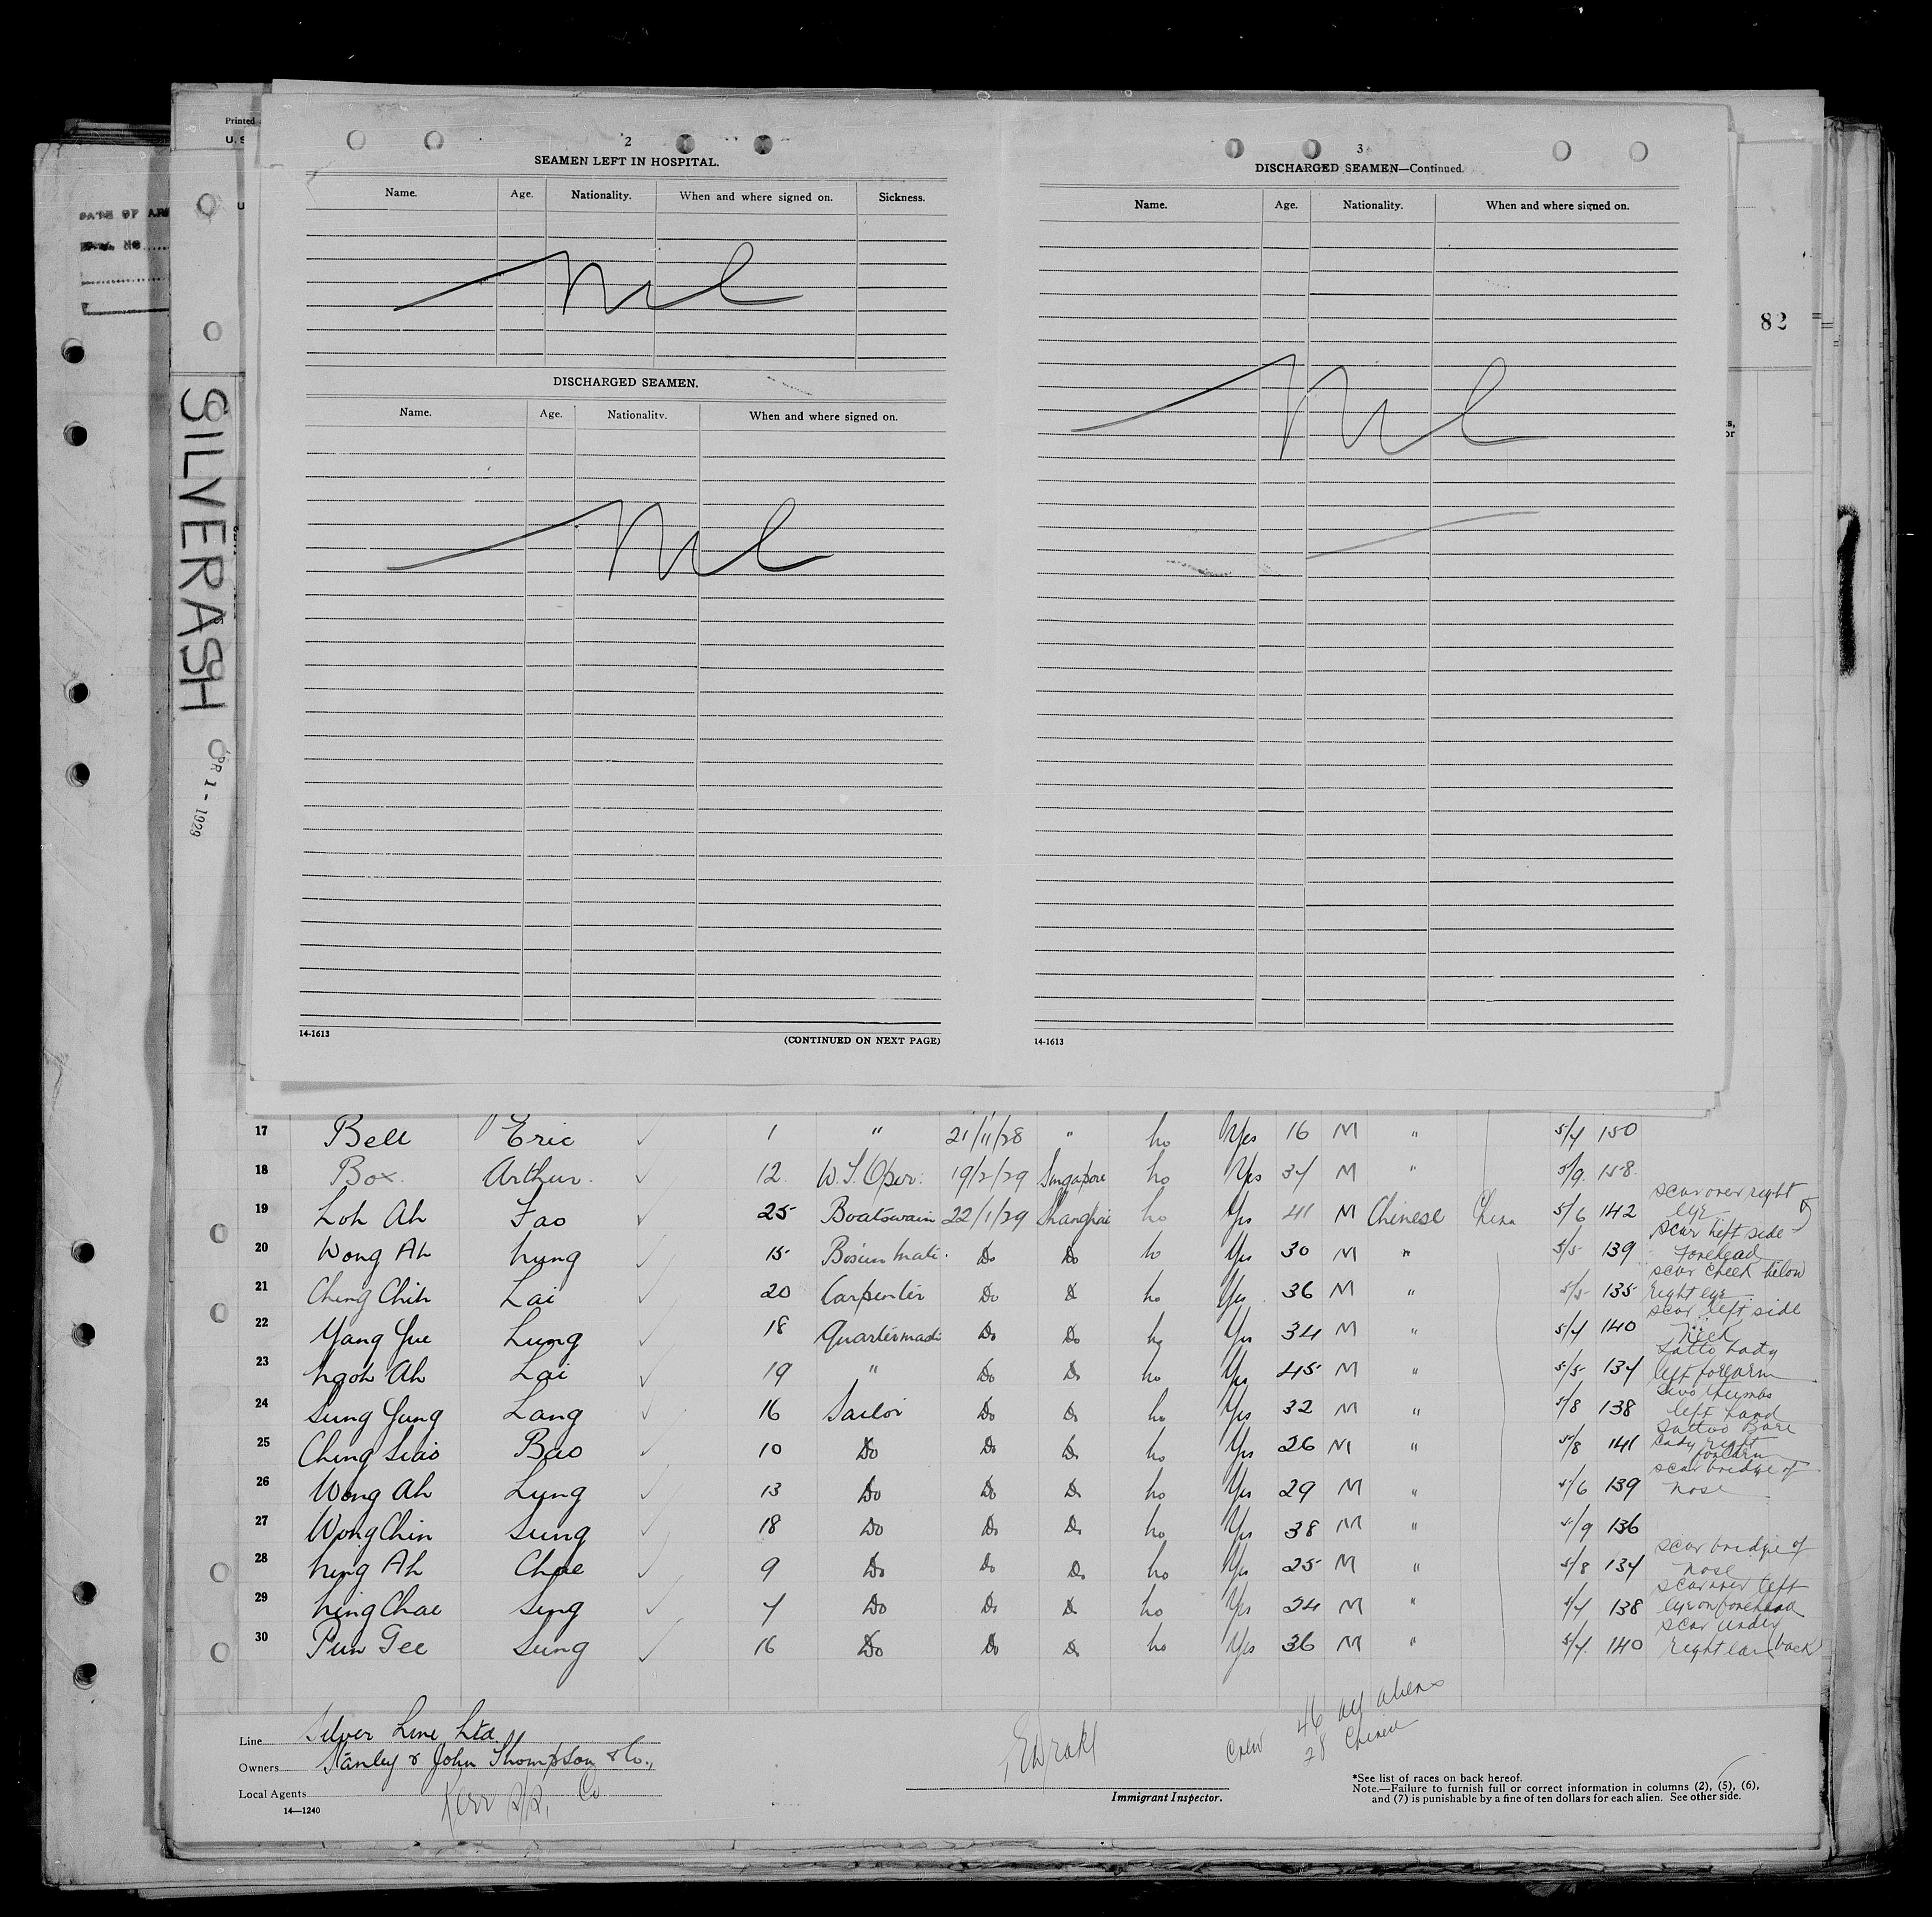 Printed
U. S
DATE OF ARR
SILVERASH
APR 1 - 1929
82
2
SEAMEN LEFT IN HOSPITAL.
Name. Age. Nationality. When and where signed on. Sickness.
Nil
DISCHARGED SEAMEN.
Name. Age. Nationality. When and where signed on.
Nil
14-1613
(CONTINUED ON NEXT PAGE)
3
DISCHARGED SEAMEN—Continued.
Name. Age. Nationality. When and where signed on.
Nil
14-1613
17 Bell Eric 1 " 21/11/28 " No Yes 16 M " 5/7 150
18 Box Arthur. 12. W.T. Oper. 19/2/29 Singapore No Yes 37 M " 5/9. 158.
19 Loh Ah Fao 25 Boatswain 22/1/29 Shanghai No Yes 41 M Chinese China 5/6 142 scar over right eye
20 Wong Ah Nung 15 Bosun Mate. Do Do No Yes 30 M " 5/5 139 scar left side forehead
21 Cheng Chih Lai 20 Carpenter Do Do No Yes. 36 M " 5/5 135 scar cheek below right eye
22 Yang Yue Lung 18 Quartermaster Do Do No Yes 34 M " 5/7 140 scar left side neck
23 Ngoh Ah Lai 19 " Do Do No Yes 45 M " 5/5 137 Tatto Lady left forearm
24 Sung Yung Lang 16 Sailor Do Do No Yes 32 M " 5/8 138 two thumbs left hand
25 Ching Siao Bao 10 Do Do Do No Yes 26 M " 5/8 141 Tattoo Bare Lady right forearm
26 Wong Ah Lung 13 Do Do Do No Yes 29 M " 5/6 139 scar bridge of nose
27 Wong Chin Sung 18 Do Do Do No Yes 38 M " 5/9 136
28 Ning Ah Choe 9 Do Do Do No Yes 25 M " 5/8 137 scar bridge of nose
29 Ning Chae Sing 7 Do Do Do No Yes 24 M " 5/7 138 scar over left eye on forehead
30 Pun Gee Sung 16 Do Do Do No Yes 36 M " 5/7. 140 scar under right ear (back
Line Silver Line Ltd.
Owners Stanley & John Thompson & Co.,
Local Agents Kerr S/S, Co
14—1240
Immigrant Inspector.
Crew 46 all aliens
28 Chinese
*See list of races on back hereof.
Note.—Failure to furnish full or correct information in columns (2), (5), (6),
and (7) is punishable by a fine of ten dollars for each alien. See other side.